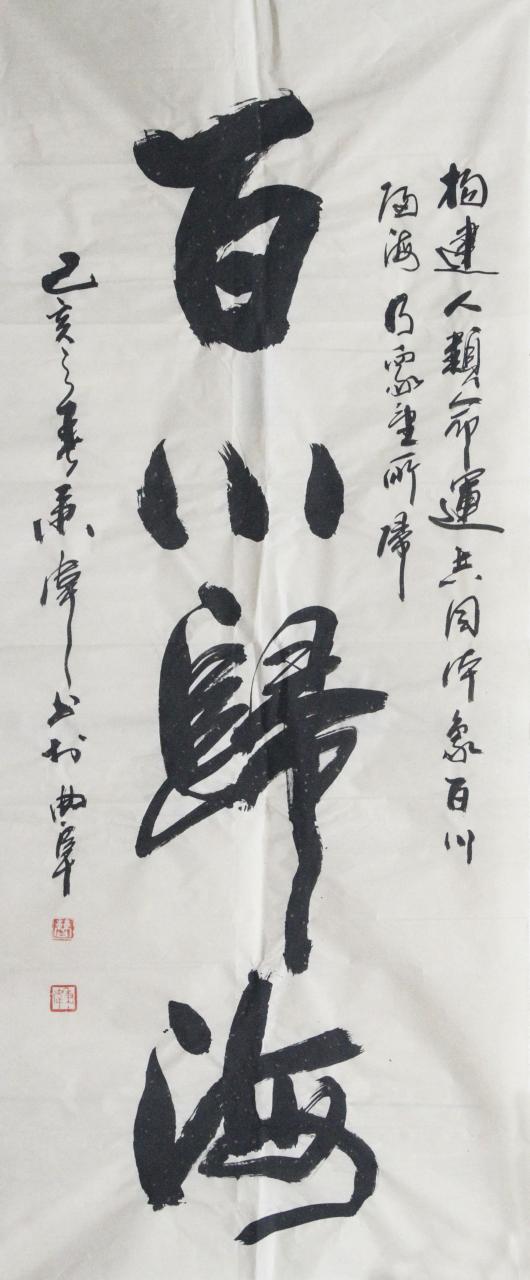 构建人類命運共同体象百川
歸海乃眾望所歸
百川歸海
己亥之春偉書於曲阜